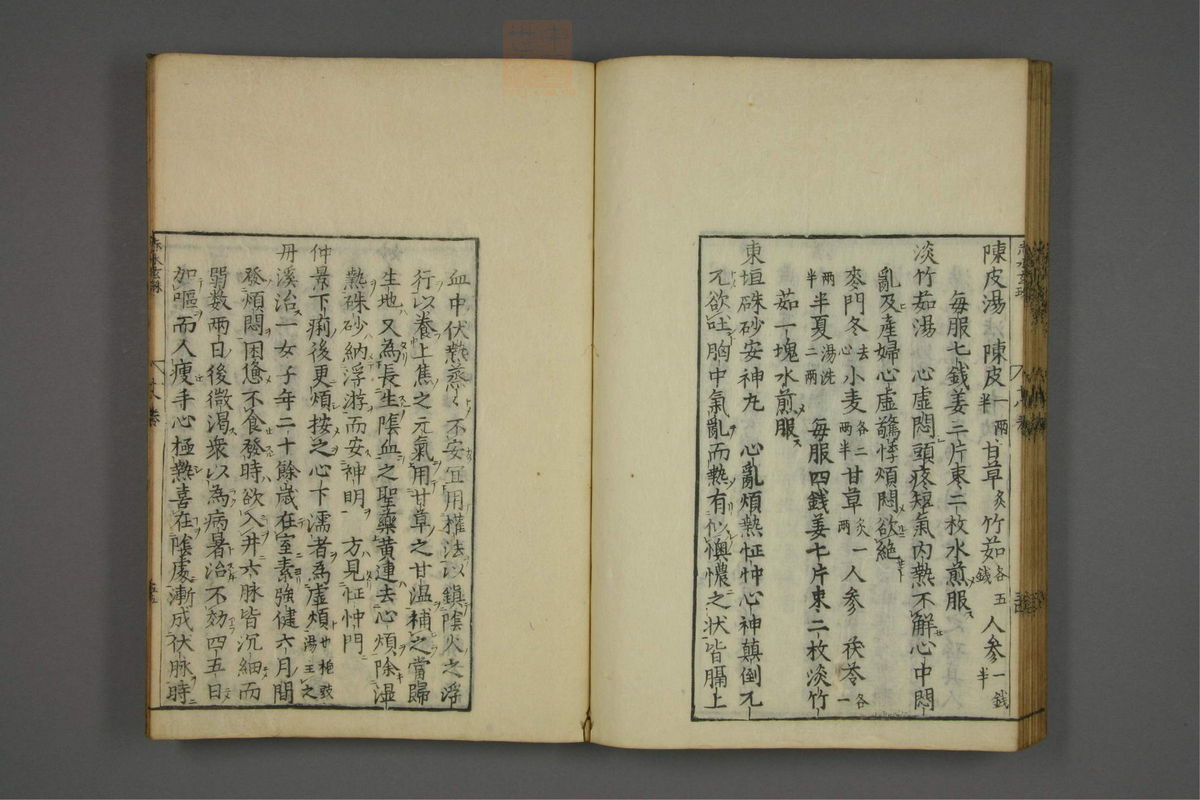 陳皮湯 陳皮一兩半 甘草炙 竹茹各五錢 人參一錢半
每服七錢姜三片棗二枚水煎服
淡竹茹湯 心虛悶頭疼短氣內熱不解心中悶
亂及產婦心虛驚悸煩悶欲絕
麥門冬去心 小麦各二兩半 甘草炙一兩 人參 茯苓各一
兩半 半夏湯洗二兩 每服四錢姜七片束二枚淡竹
茹一塊水煎服
東垣硃砂安神丸 心亂煩熱怔忡心神蘋倒兀
兀欲吐胸中氣亂而熱有似懊憹之状皆膈上
血中伏熱蒸蒸不安宜用權法以鎮陰火之浮
行以養上焦之元氣用甘草之甘温補之當歸
生地又為長生陰血之聖藥黄連去心煩除湿
熱硃砂納浮游而安神明 方見怔忡門
仲景下痢後更煩按之心下濡者為虛煩廿梔豉湯主之
丹溪治一女子年二十餘歲在室素強健六月間
發煩悶困憊不食發時欲入井六脉皆沉細而
弱数兩日後微渴衆以為病暑治不効四五日
加嘔而人瘦手心極熱喜在陰處漸成伏脉時